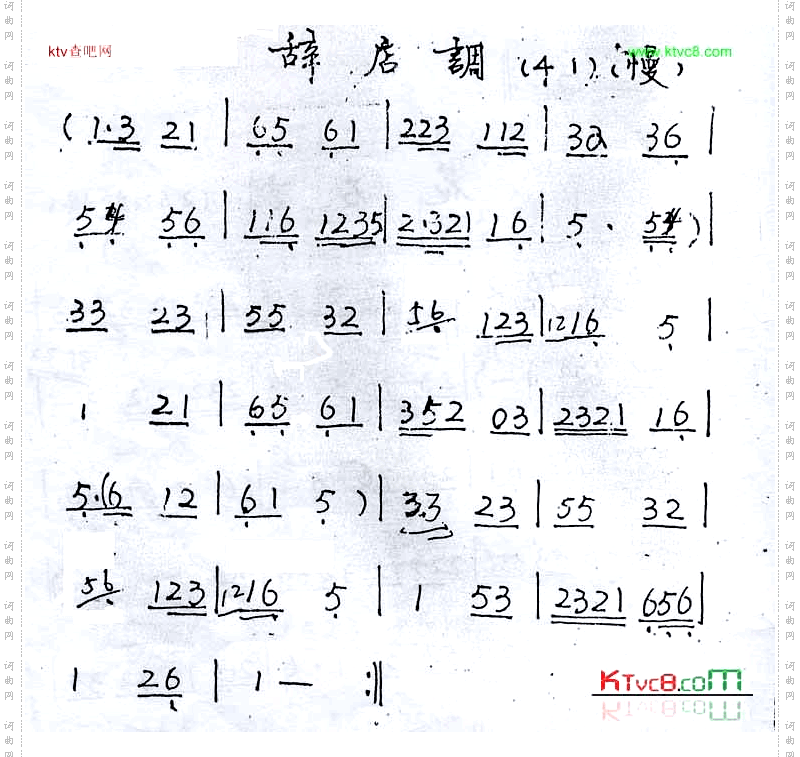 ktv查吧网
www.ktvc8.com
辞店調(41)(慢)
(1·3 21 | 65 61 | 223 112 | 32 36 |
5 56 | 1·6 1235 | 2·321 16 | 5 · 5)|
33 23 | 55 32 | 56 123 | 1216 5 |
1 21 | 65 61 | 352 03 | 2321 16 |
5·(6 12 | 61 5 ) | 3.3 23 | 55 32 |
56 123 | 1216 5 | 1 53 | 2321 656 |
1 26 | 1 — :‖
KTVC8.COM
词曲网